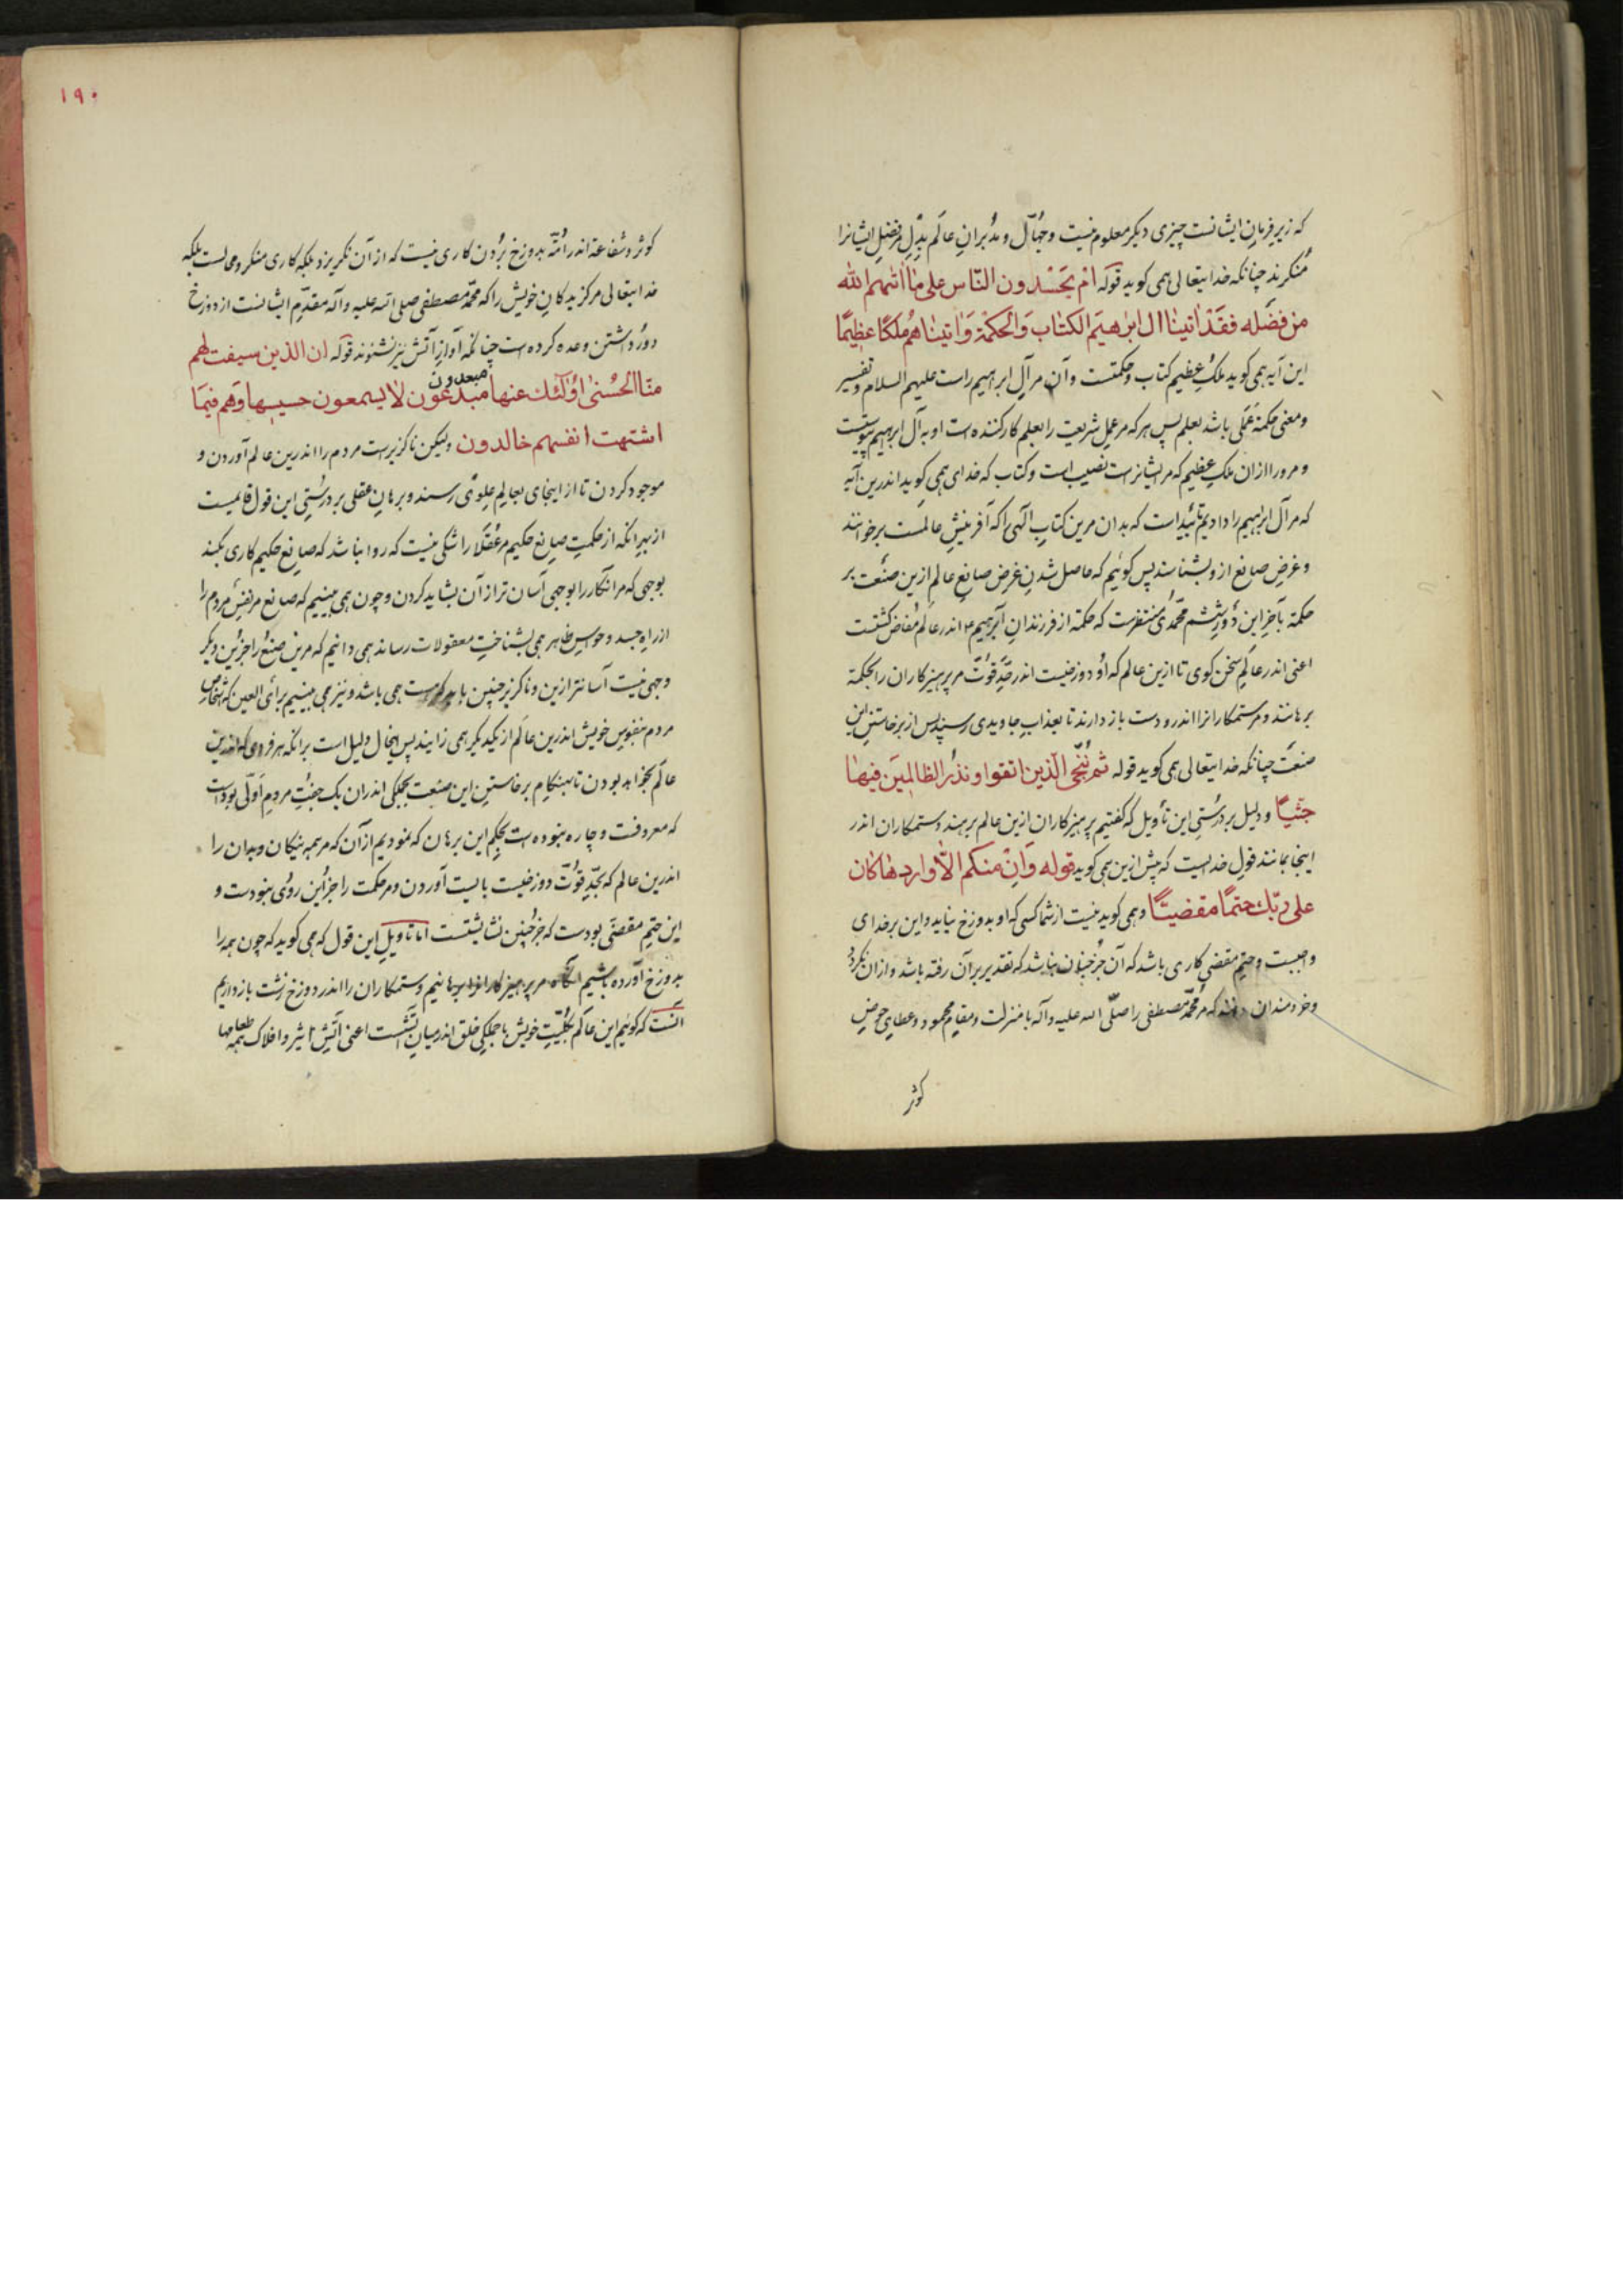 که زیر فرمان ایشانست چیزی دیگر معلوم نیست و جهّال و مدبران عالم بدل مر فضل ایشانرا
منکرند چنانکه خدایتعالی همی کوید قوله ام یحسدون النّاس علی ما اتیهم الله
من فضله فقد اتینا ال ابرهیم الکتاب والحکمة واتیناهم ملکا عظیما
این آیه همی کوید ملک عظیم کتاب و حکمتست و آن مر آل ابراهیم راست علیهم السلام و تفسیر
ومعنی حکمة عملی باشد بعلم پس هر که مر عمل شریعت را بعلم کار کننده است او به آل ابرهیم پیوستست
و مرورا ازان ملک عظیم که مر ایشانرست نصیب است وکتاب که خدای همی کوید اندرین آیه
که مر آل ابرهیم را دادیم تأیید است که بدان مرین کتاب الهی را که آفرینش عالمست برخوانند
و غرض صانع ازو بشناسند پس کوئیم که حاصل شدن غرض صانع عالم ازین صنعت بر
حکمة بآخر این دور ششم محمّدی منتظرست که حکمة از فرزندان ابرهیم ع اندر عالم مفاض کشتست
اعنی اندر عالم سخن کوی تا ازین عالم که او دوزخیست اندر حدّ قوّت مر پرهیزکاران را بحکمة
برهانند و مر ستمکارانرا اندرو دست باز دارند تا بعذاب جاویدی رسند پس از برخاستن این
صنعت چنانکه خدایتعالی همی کوید قوله ثم ننجّی الّذین اتقوا ونذر الظالمین فیها
جثیّا ودلیل بر درستی این تأویل که کفتیم پرهیزکاران ازین عالم برهند و ستمکاران اندر
اینجا بمانند قول خدایست که پیش ازین همی کوید قوله وان منکم الّا واردها کان
علی ربّک حتما مقضیّا وهمی کوید نیست از شما کسی که او بدوزخ نیاید واین بر خدای
واجبست و حتم مقضی کاری باشد که آن جز چنان نباشد که تقدیر بر آن رفته باشد و ازان نکردد
وخردمندان دانند که مر محمّد مصطفی را صلّی الله علیه وآله با منزلت و مقام محمود و عطای حوض
کوثر
۱۹۰
کوثر وشفاعة اندر امّة بدوزخ بردن کاری نیست که از آن نکریزد بلکه کاری منکر ومحالست بلکه
خدایتعالی مر کزیدکان خویش را که محمّد مصطفی صلی الله علیه وآله مقدّم ایشانست از دوزخ
دور داشتن وعده کرده است چنانکه آواز آتش نیز نشنوند قوله ان الذین سبقت لهم
منّا الحسنی اولئک عنها مبدعون لا یسمعون حسیسها وهم فیما
مبعدون
اشتهت انفسهم خالدون ولیکن ناکزیرست مردم را اندرین عالم آوردن و
موجود کردن تا از اینجای بعالم علوی رسند و برهان عقلی بر درستی این قول قایمست
از بهر انکه از حکمت صانع حکیم مر عقلا را شکی نیست که روا نباشد که صانع حکیم کاری بکند
بوجهی که مر انکار را بوجهی آسان تر از آن بشاید کردن و چون همی بینیم که صانع مر نفس مردم را
از راه جسد و حواس ظاهر همی بشناخت معقولات رساند همی دانیم که مرین صنع را جز این دیگر
وجهی نیست آسانتر ازین و ناکزیر چنین همی باشد ونیز همی بینیم برأی العین که اشخاص
مردم بنفوس خویش اندرین عالم از یکدیکر همی زایند پس اینحال دلیل است برانکه هر که اندرین
عالم بخواهد بودن تا بهنکام برخاستن این صنعت بجملکی اندران یک جفت مردم اوّلی بوداست
که معروفست و چاره نبوده است بحکم این برهان که نمودیم از آن که مر همه نیکان وبدان را
اندرین عالم که بحدّ قوّت دوزخیست بایست آوردن ومر حکمت را جز این روی نبودست و
این حتم مقضی بودست که جز چنین نشایستست اما تاویل این قول که همی کوید که چون همه را
بدوزخ آورده باشیم انکاه مر پرهیزکارانرا برهانیم و ستمکاران را اندر دوزخ زشت بازداریم
آنست که کوئیم این عالم بکلّیّت خویش با جملکی خلق اندر میان آتشست اعنی آتش اثیر وافلاک